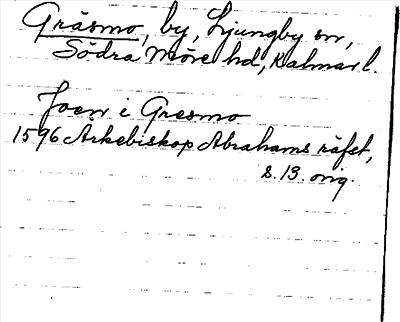 Gräsmo, by, Ljungby sn,
Södra Möre hd, Kalmar l.
Joen i Gresmo
1596 Ärkebiskop Abrahams räfst,
s. 13. orig.